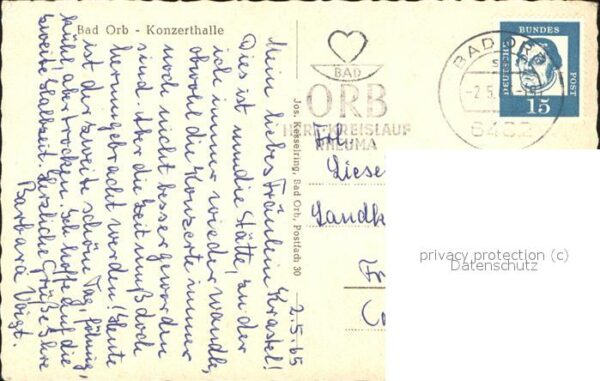 Bad Orb - Konzerthalle
Mein liebes Fräulein Krastel!
Dies ist nun die Stätte, zu der
ich immer wieder wandle,
obwohl die Konzerte immer
noch nicht besser geworden
sind. Aber die Zeit muß doch
herumgebracht werden! Heute
ist der zweite schöne Tag,
kühl, aber trocken. Ich hoffe auf die
zweite Halbzeit. Herzliche Grüße Ihre
Barbara Voigt.
2.5.65
Jos. Kesselring, Bad Orb, Postfach 30
BAD
ORB
HERZ-KREISLAUF
RHEUMA
BAD ORB
-2.5.
6482
DEUTSCHE
BUNDES
POST
15
Liese
Landk
privacy protection (c)
Datenschutz